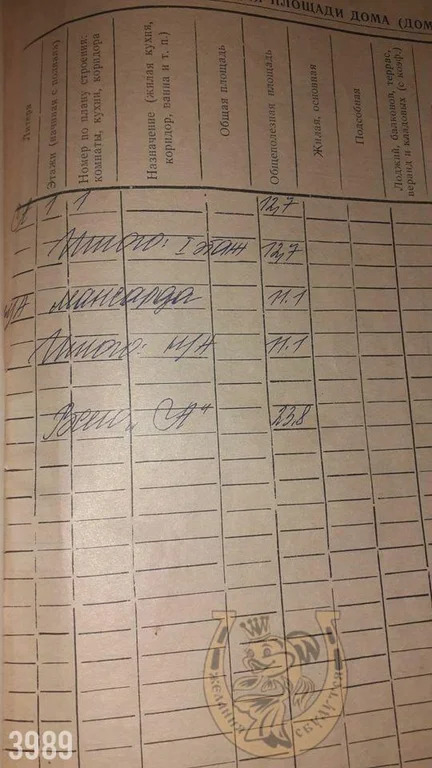 ПЛОЩАДИ ДОМА (ДОМ
Литера
Этажи (начиная с подвала)
Номер по плану строения:
комнаты, кухни, коридора
Назначение (жилая кухня,
коридор, ванна и т. п.)
Общая площадь
Общеполезная площадь
Жилая, основная
Подсобная
Лоджий, балконов, террас,
веранд и кладовых (с коэф.)
1 1 12,7
Итого: I этаж 12,7
м/А мансарда 11.1
Итого: м/А 11.1
Всего „А“ 23.8
3989